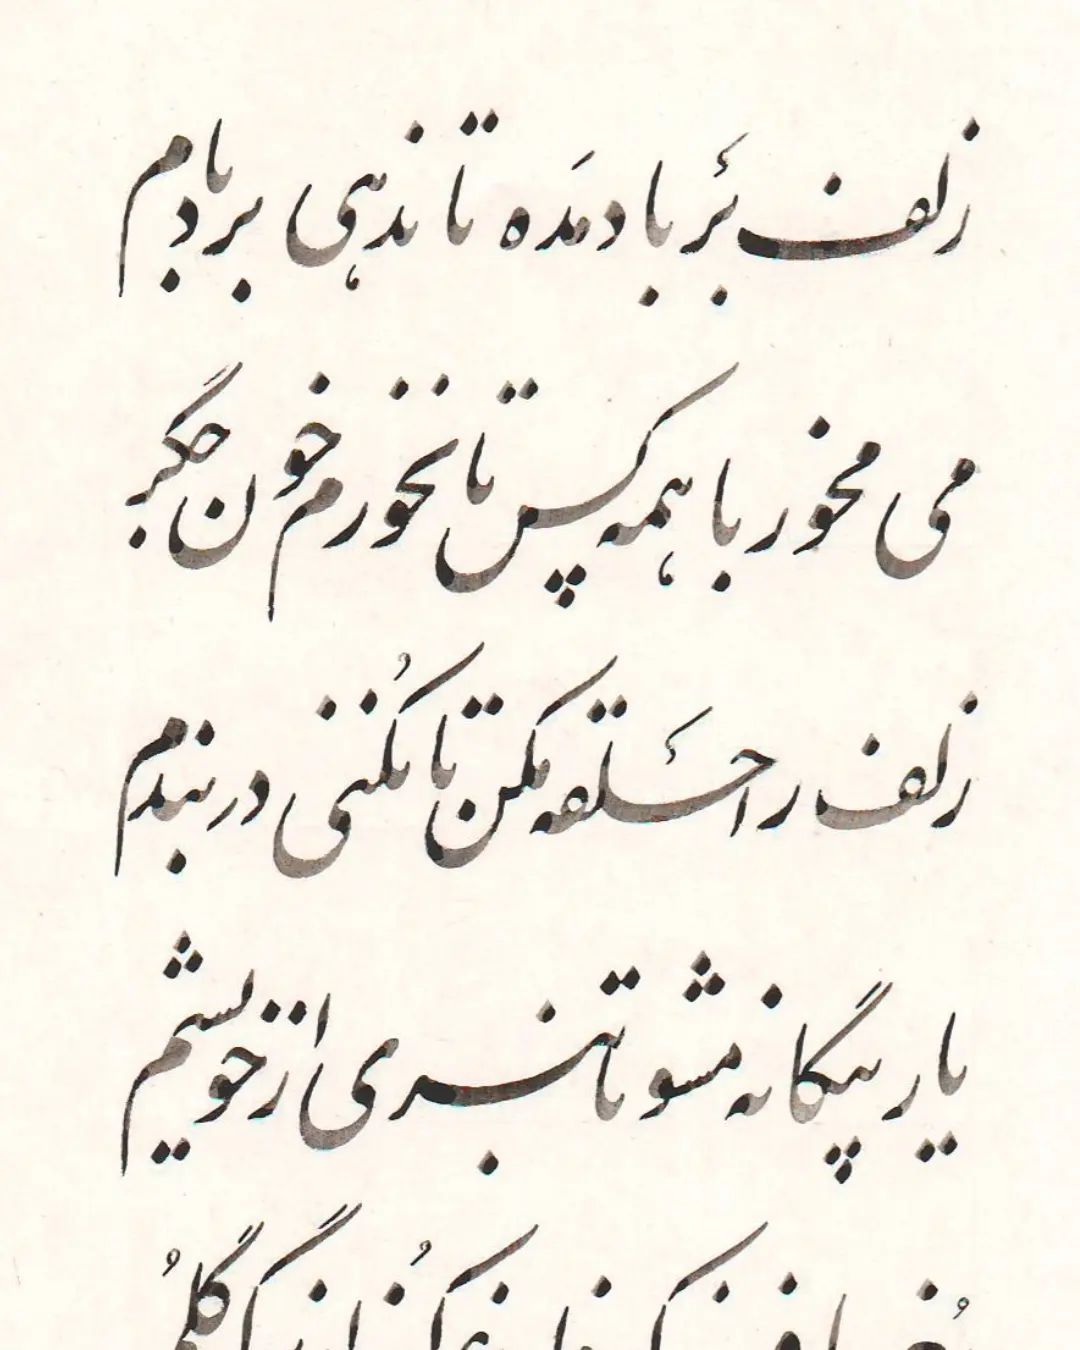 زلف بَر باد مَده تا ندهی بر بادم
می مخور با همه کس تا نخورم خون جگر
زلف را حَلقه مکن تا نکُنی در بندم
یار بیگانه مشو تا نبری از خویشم